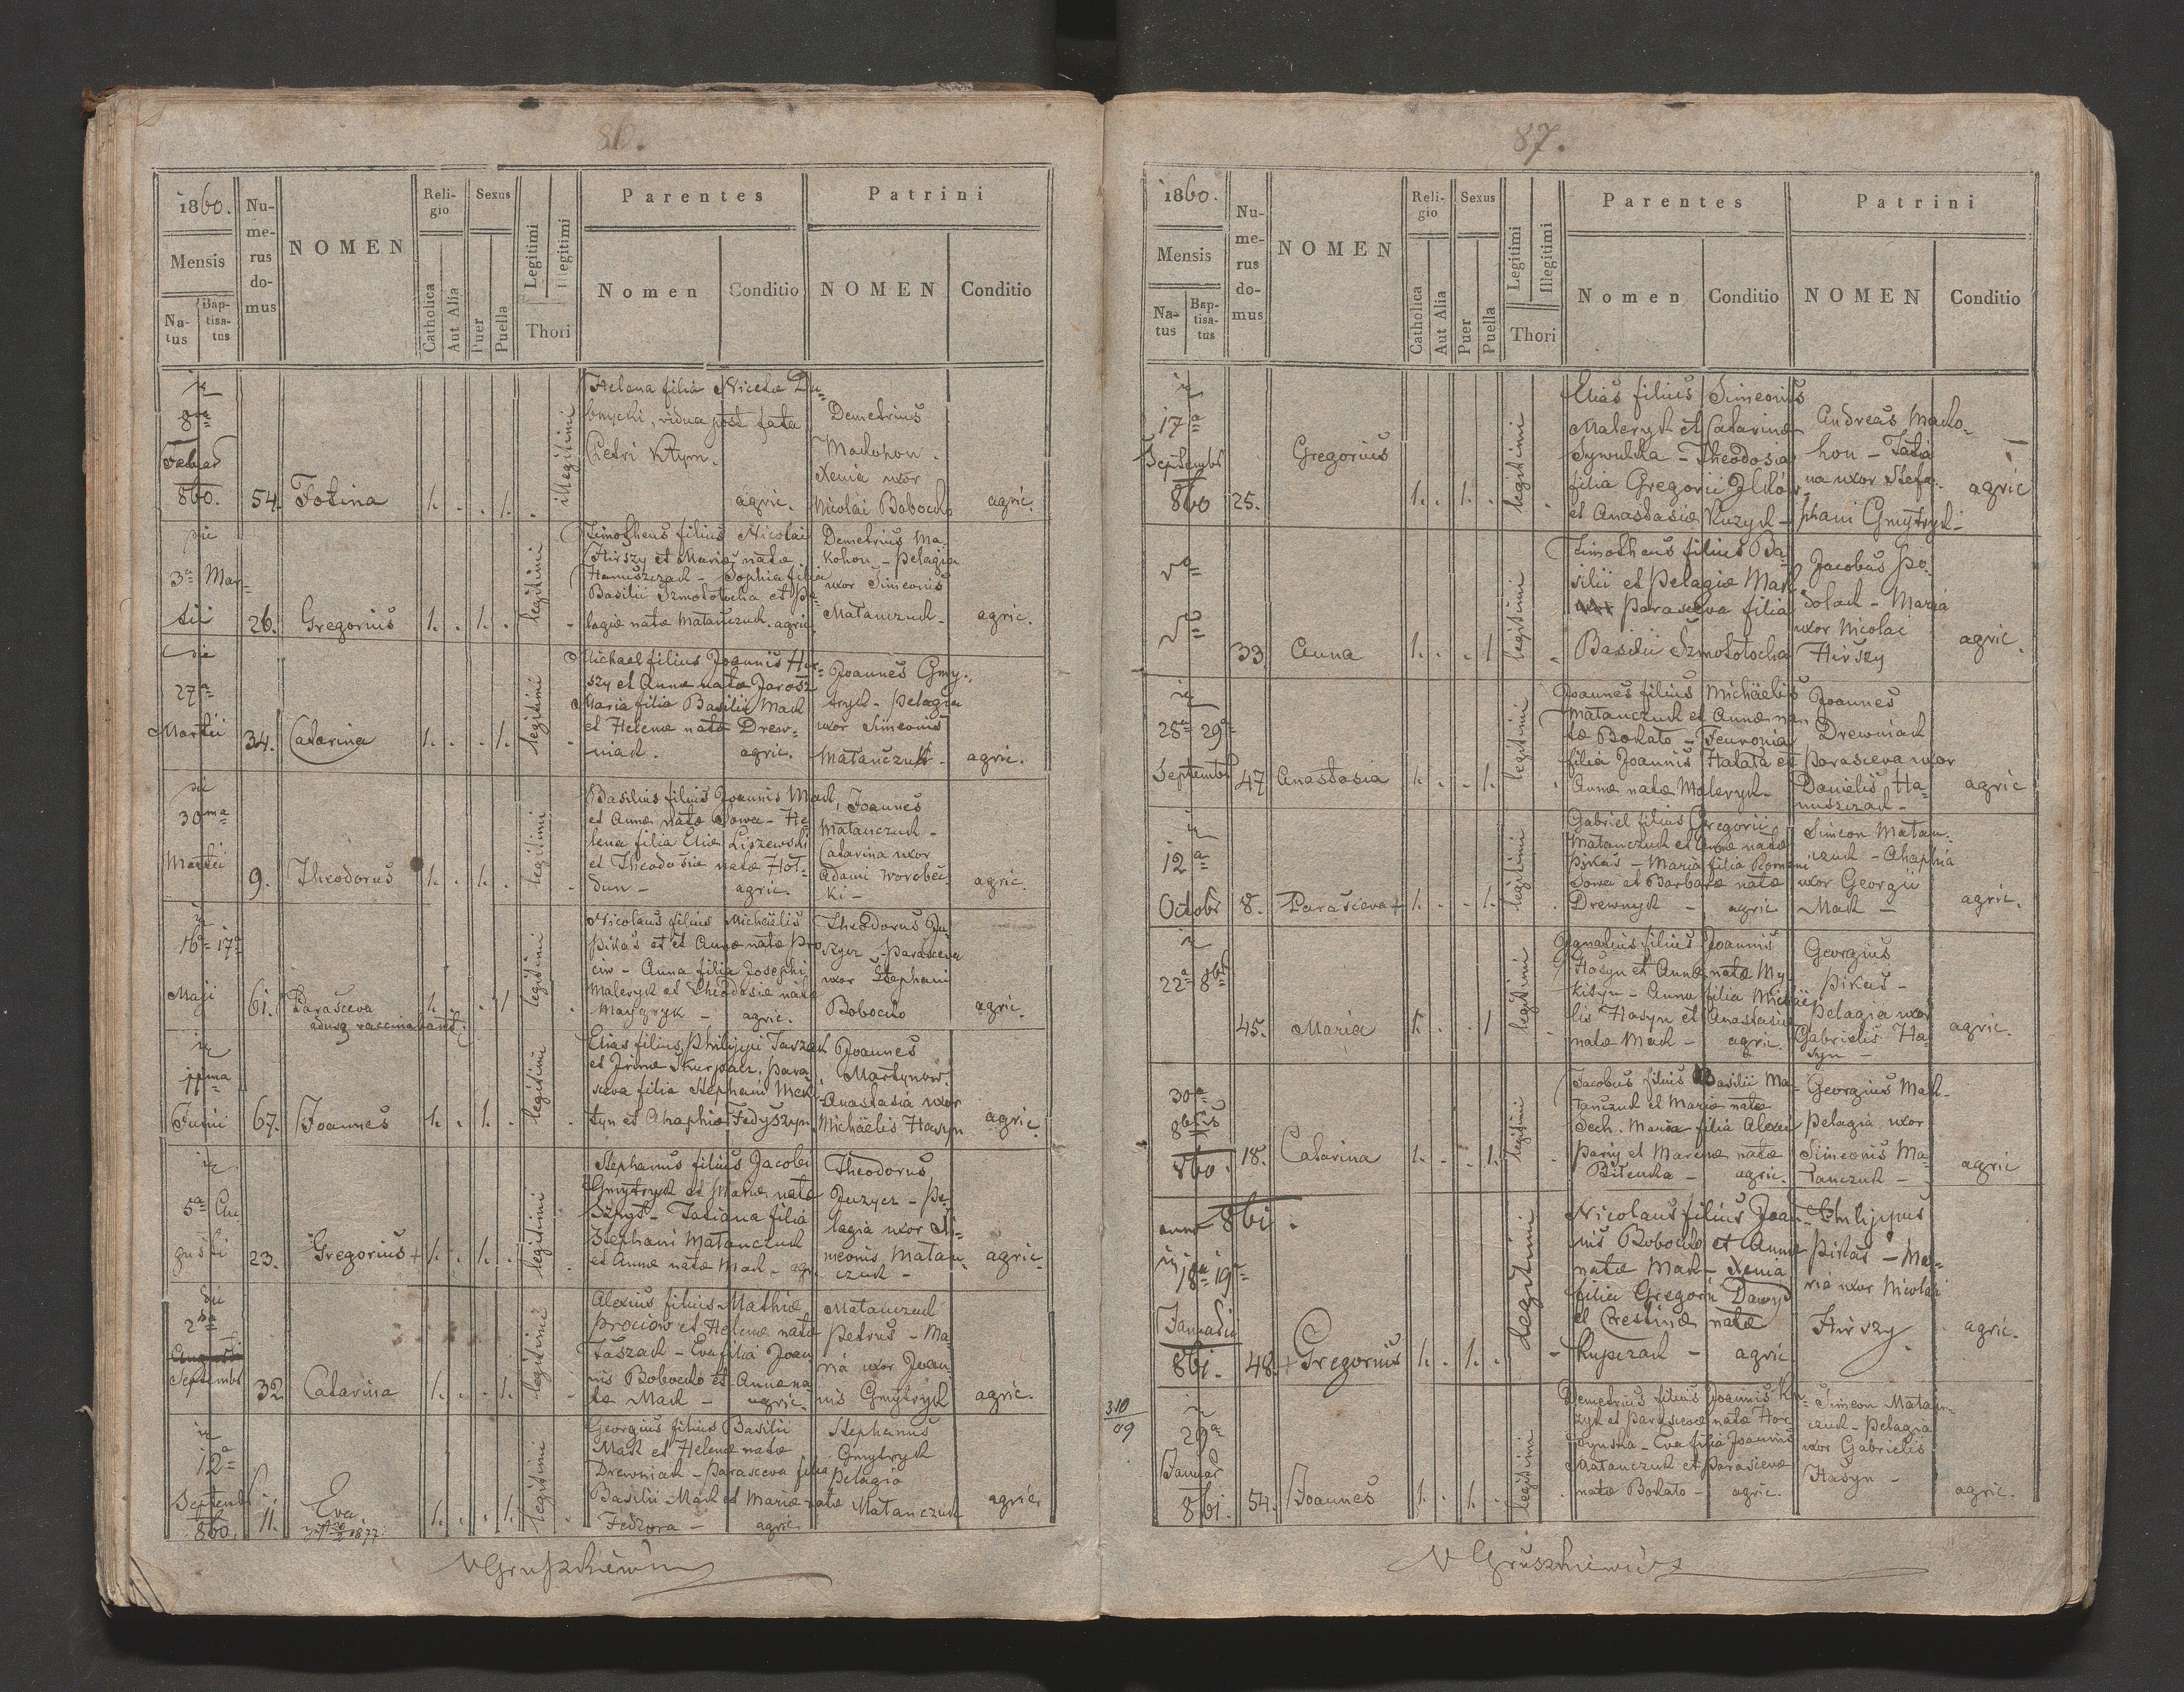 86.
1860.
Mensis
Na-
tus
Bap-
tisa-
tus
Nu-
me-
rus
do-
mus
NOMEN
Reli-
gio
Catholica
Aut Alia
Sexus
Puer
Puella
Legitimi
Illegitimi
Thori
Parentes
Nomen
Conditio
Patrini
NOMEN
Conditio
8va
Februar
860.
54.
Fotina
1. . . 1. .
illegitimi
Helena filia Nicetae Du-
bnycki, vidua post fata
Petri Ktym.
agric.
Demetrius
Makohon.
Xenia uxor
Nicolai Bobocko
agric.
die
3a Mar-
tii
26.
Gregorius
1. . 1. .
legitimi
Timotheus filius Nicolai
Hirszy et Mariae natae
Hanuszczak - Sophia filia
Basilii Szmototocha et Pe-
lagiae natae Matańczuk. agric.
Demetrius Ma-
kohon - Pelagia
uxor Simeonis
Matańczuk -
agric.
die
27a
Martii
34.
Catarina
1. . . 1.
legitimi
Michael filius Joannis Hir-
szy et Annae natae Jarosz
Maria filia Basilii Mak
et Helenae natae Drew-
niak. agric.
Joannes Gmy-
tryk - Pelagia
uxor Simeonis
Matańczuk -
agric.
30ma
Martii
9.
Theodorus
1. . 1. .
legitimi
Basilius filius Joannis Mak,
et Annae natae Sowa - He-
lena filia Eliae Liszewski
et Theodosiae natae Hoł-
dun - agric.
Joannes
Matanczuk -
Catarina uxor
Adami Worobec-
ki -
agric.
16a 17a
Maji
61.
Parasceva
1. . . 1
legitimi
Nicolaus filius Michaelis
Pikas et et Annae natae Pro-
ciw - Anna filia Josephi
Maleryk et Theodosiae natae
agric.
Theodorus
Parasceva
uxor Stephani
Bobocko
agric.
11ma
Junii
67.
Joannes
1. . 1. .
legitimi
Elias filius Philippi Taszak
et Irenae Skurpacz, Para-
sceva filia Stephani
et Ahaphiae Fedyszyn.
Joannes
Martynow.
Anastasia uxor
Michaelis Hasyn
agric.
5a Au-
gusti
23.
Gregorius +
1. . 1. .
legitimi
Stephanus filius Jacobi
Gmytryk et Mariae natae
Tatiana filia
Stephani Matanczuk
et Annae natae Mak - agr.
Theodorus
Pe-
lagia uxor Si-
meonis Matan-
czuk -
agric.
2da
Augusti
Septembr
32
Catarina
1. . . 1.
legitimi
Alexius filius Mathiae
Prociow et Helenae natae
Taszak - Eva filia Joan-
nis Bobocko et Annae na-
tae Mak - agric.
Matanczuk
Petrus - Ma-
ria uxor Joan-
nis Gmytryk
agric.
12a
Septemb
860.
11.
Eva
1877
1. . . 1.
legitimi
Georgius filius Basilii
Mak et Helenae natae
Drewniak - Parasceva filia
Basilii Mak et Mariae natae
Fedzora - agric.
Stephanus
Gmytryk
Pelagia
Matanczuk
agric.
87.
1860.
Mensis
Na-
tus
Bap-
tisa-
tus
Nu-
me-
rus
do-
mus
NOMEN
Reli-
gio
Catholica
Aut Alia
Sexus
Puer
Puella
Legitimi
Illegitimi
Thori
Parentes
Nomen
Conditio
Patrini
NOMEN
Conditio
17a
Septembr
860
25.
Gregorius
1. . 1. .
legitimi
Elias filius Simeonis
Maleryk et Catarinae
Sywulka - Theodosia
filia Gregorii Ilków
et Anastasiae Kuzyk -
Andreas Mako-
hon - Tatia-
na uxor Stefa-
phani Gmytryk -
agric
33
Anna
1. . . 1
legitimi
Timotheus filius Ba-
silii et Pelagiae Mak
Parasceva filia
Basilii Szmototocha
Jacobus Po-
dolak - Maria
uxor Nicolai
Hirszy
agric.
28a 29a
Septembr
47
Anastasia
1. . . 1.
legitimi
Joannes filius Michaelis
Matanczuk et Annae na-
tae Bokało - Fevronia
filia Joannis Hałata et
Annae natae Maleryk -
Joannes
Drewniak
Parasceva uxor
Danielis Ha-
nuszczak -
agric
12a
Octobr
8.
Parasceva +
1. . . 1.
legitimi
Gabriel filius Gregorii
Matanczuk et Annae natae
Pikas - Maria filia Romani
Sowa et Barbarae natae
Drewnyk - agric
Simeon Matan-
czuk - Ahaphia
uxor Georgii
Mak -
agric.
22a 8br
45.
Maria
1. . . 1
legitimi
Ignatius filius Joannis
Hasyn et Annae natae My-
kityn - Anna filia Michae-
lis Hasyn et Anastasiae
natae Mak - agric.
Georgius
Pikas -
Pelagia uxor
Gabrielis Ha-
syn -
agric.
30a
8bris
860.
18.
Catarina
1. . . 1.
legitimi
Jacobus filius Basilii Ma-
tanczuk et Mariae natae
Sech. Maria filia Alexii
Parij et Marinae natae
Bilenka - agric.
Georgius Mak -
Pelagia uxor
Simeonis Ma-
tanczuk -
agric
anno 861.
18a 19a
Januarii
861.
48.
+ Gregorius
1. . 1. .
Legitimi
Nicolaus filius Joan-
nis Bobocko et Annae
natae Mak - Xenia
filia Gregorii Dawyd
et Crestinae natae
Kupczak - agric.
Philippus
Pikas - Ma-
ria uxor Nicolai
Hirszy
agric.
310
09
29a
Januar
861.
54.
Joannes
1. . 1. .
legitimi
Demetrius filius Joannis Ku-
zyk et Parascevae natae Hor-
dynska - Eva filia Joannis
Matanczuk et Parascevae
natae Bokato - agric.
Simeon Matan-
czuk - Pelagia
uxor Gabrielis
Hasyn -
agric.
N Gruszkiewicz